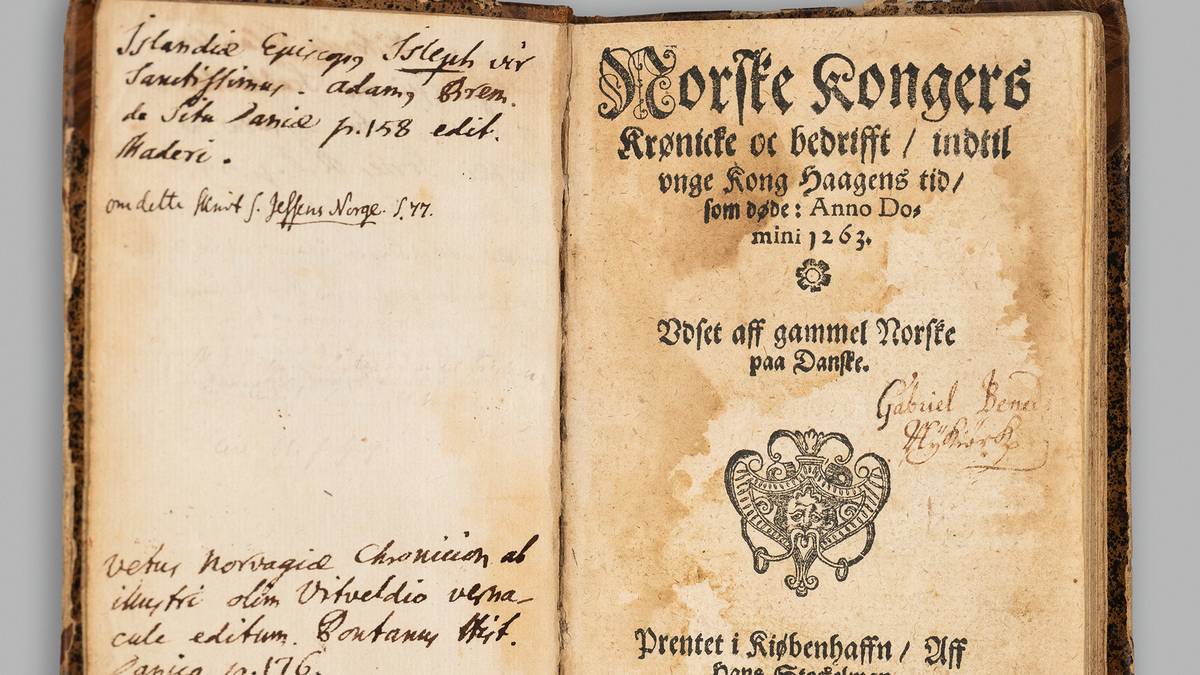 Islandiæ Episcopꝰ Isleph vir
Sanctissimus. adamꝰ Brem.
de Situ Daniæ p.158 edit.
Maderi.
om dette skrivt s. Jessens Norge. S. 77.
vetus Norvagiæ Chronicion ab
illustri olim Vitveldio verna-
cule editum. Pontanus Hist.
Danica p.176.
Norske Kongers
Krønicke oc bedrifft / indtil
vnge Kong Haagens tid/
som døde: Anno Do-
mini 1263.
Vdset aff gammel Norske
paa Danske.
Gabriel
Prentet i Kiøbenhaffn / Aff
Hans Stockelman